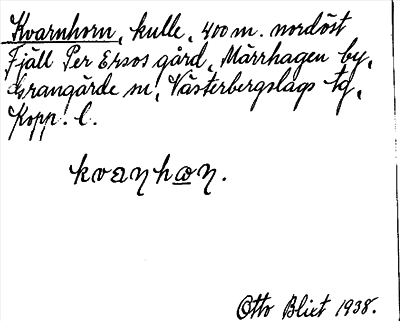 Kvarnhorn, kulle, 400 m. nordöst
Fjäll Per Ersos gård, Märrhagen by,
Grangärde sn, Västerbergslags tg,
Kopp. l.
kvaɳhꙍɳ.
Otto Blixt 1938.